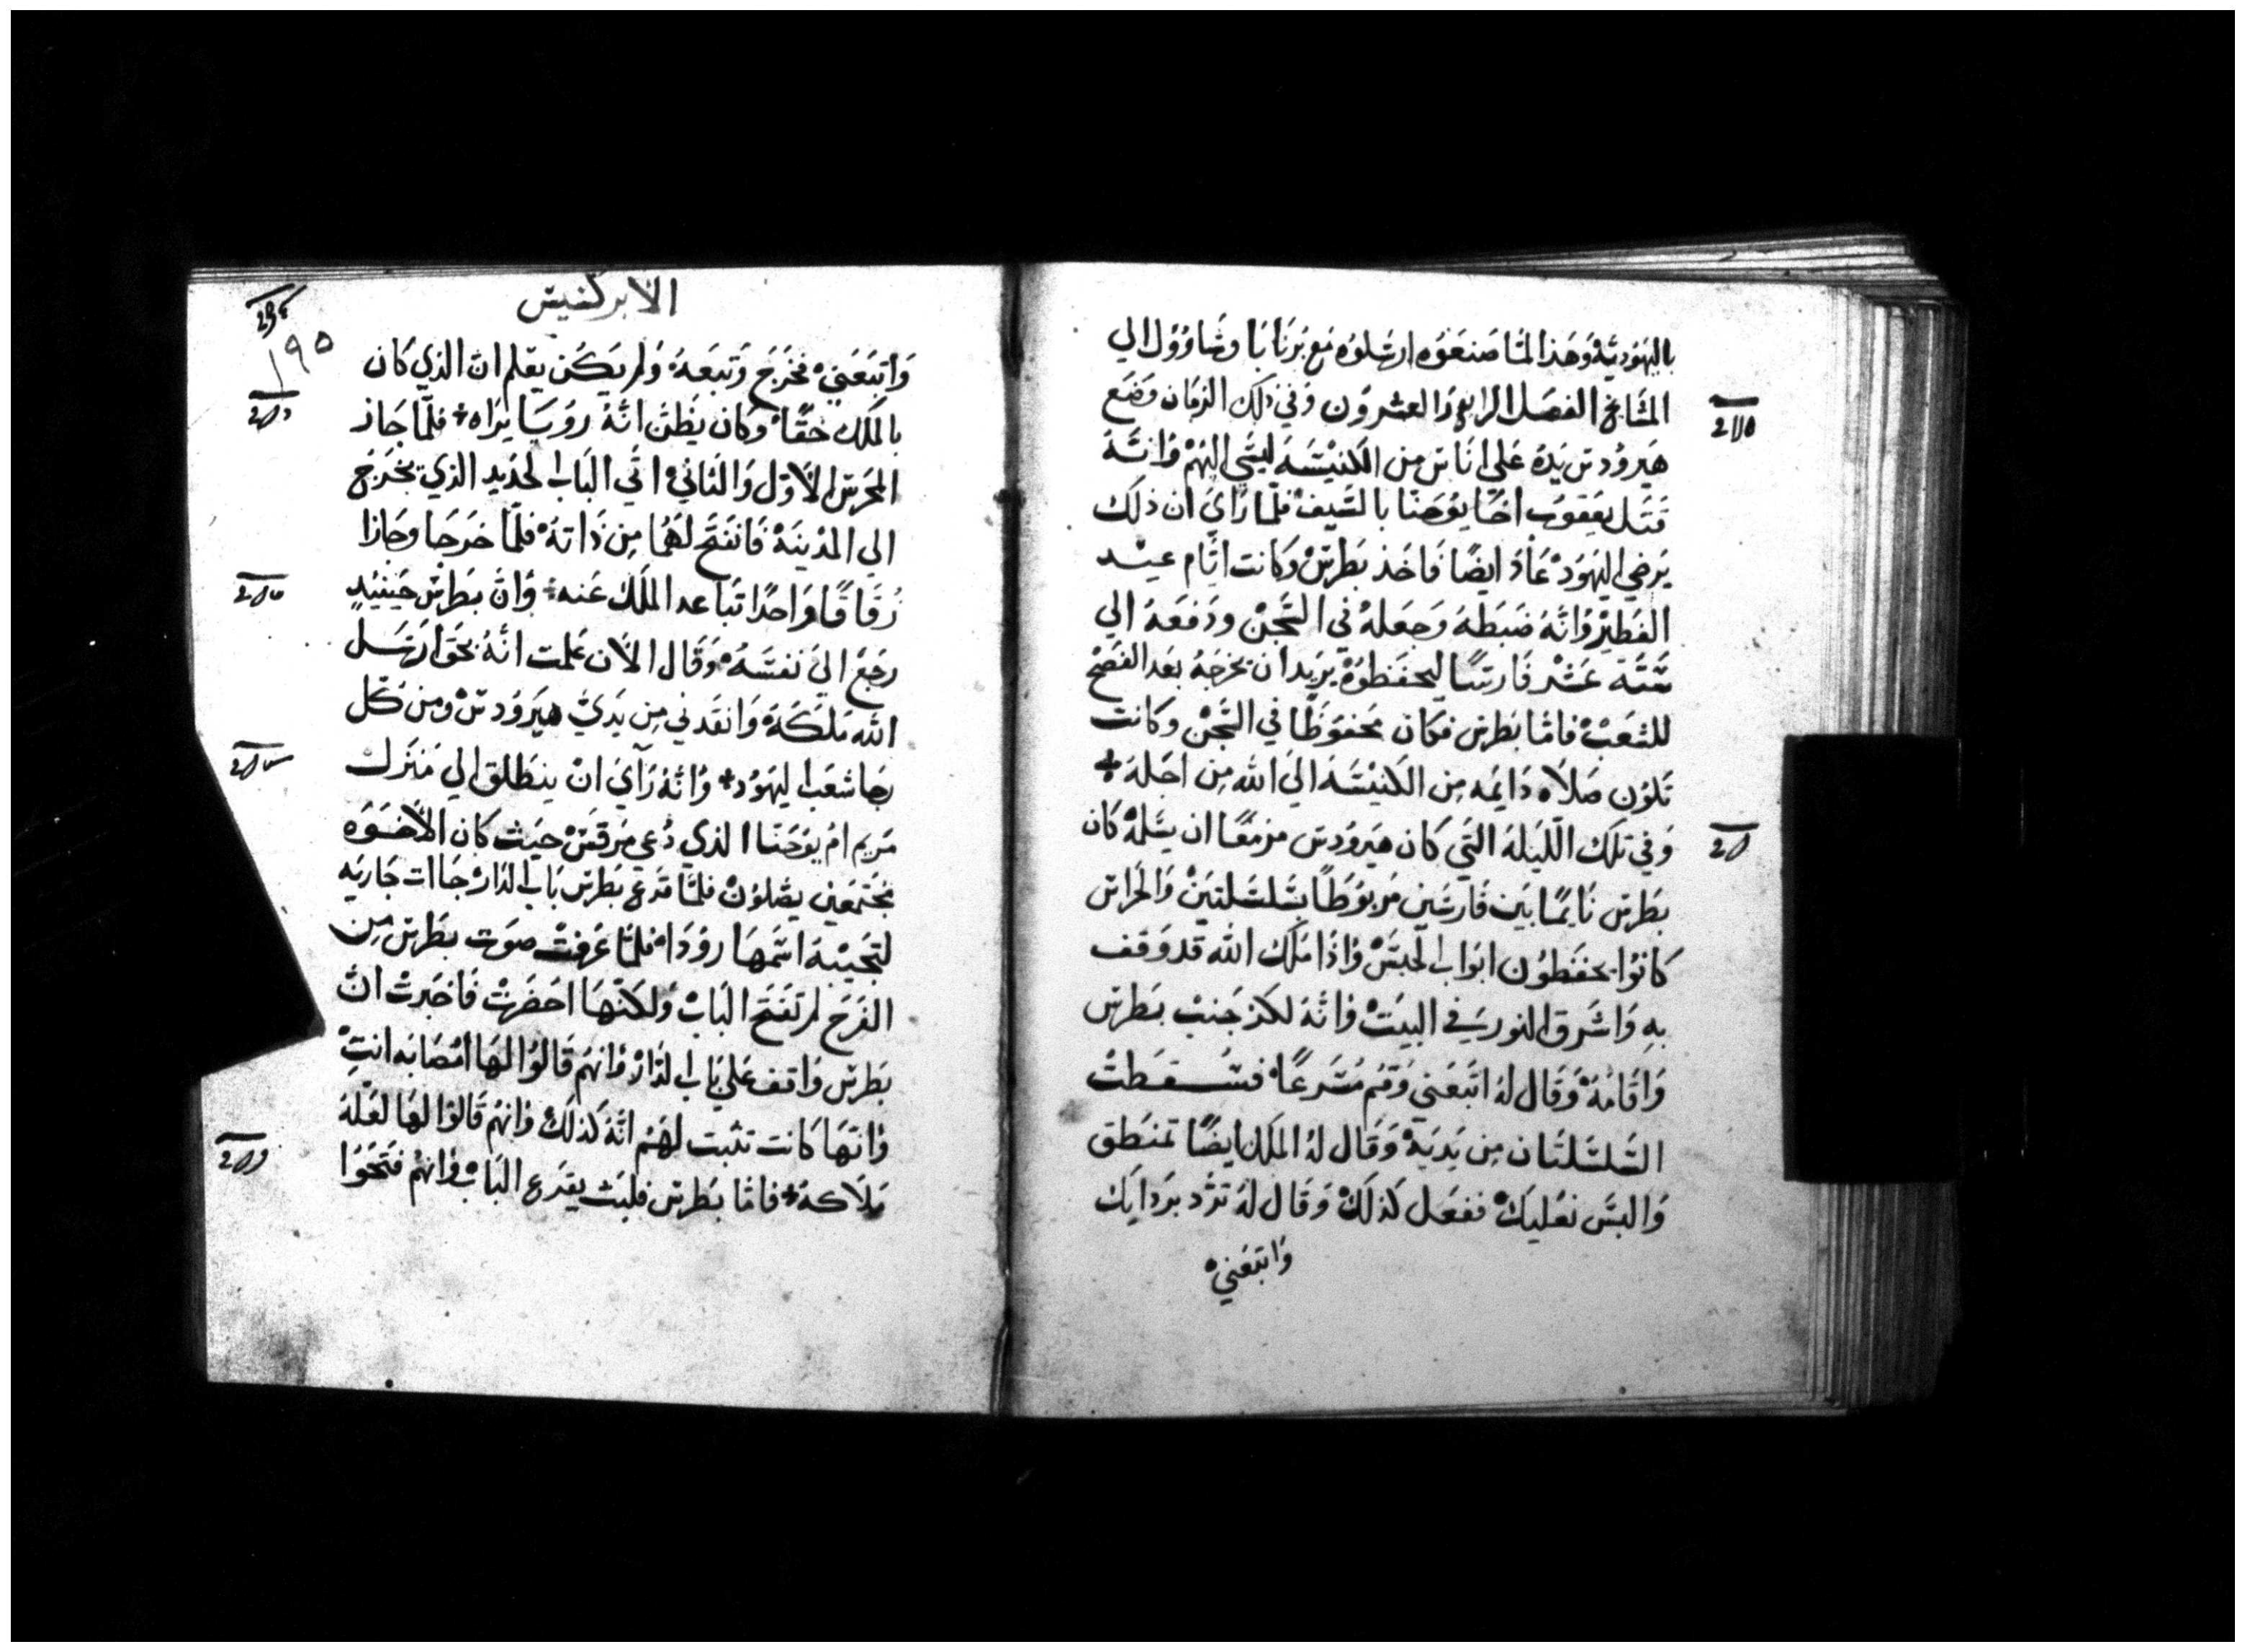 باليهودية وهذا لما صنعوه ارسلوه مع برنابا وشاوول الي
المشايخ الفصل الرابع والعشرون وفي ذلك الزمان وضع
هيرودس يده علي اناس من الكنيسه ليسي اليهم وانه
قتل يعقوب اخا يوحنا بالسيف فلما راي ان ذلك
يرضي اليهود عاد ايضًا فاخذ بطرس وكانت ايام عيد
الفطير وانه ضبطه وجعله في السجن ودفعه الي
ستة عشر فارسًا ليحفظوه يريد ان يخرجه بعد الفصح
للشعب فاما بطرس فكان محفوظًا في السجن وكانت
تكون صلاه دايمه من الكنيسه الي الله من اجله
وفي تلك الليله التي كان هيرودس مزمعًا ان يسلمه كان
بطرس نايمًا بين فارسين مربوطًا بسلسلتين والحراس
كانوا يحفظون ابواب الحبس واذا ملاك الله قد وقف
به واشرق النور في البيت وانه لكز جنب بطرس
واقامه وقال له اتبعني وقم مسرعًا فسقطت
السلسلتان من يديه وقال له الملك ايضًا تمنطق
والبس نعليك ففعل كذلك وقال له تزد بردايك
واتبعني
الابركسيس
١٩٥
واتبعني فخرج وتبعه ولم يكن يعلم ان الذي كان
بالملك حقًا وكان يظن انه روسا يراه فلما جاز
المحرس الاول والثاني اتي الباب الحديد الذي يخرج
الي المدينة فانفتح لهما من ذاته فلما خرجا وجازا
زقاقًا واحدًا تباعد الملك عنه وان بطرس حينيذٍ
رجع الي نفسه وقال الان علمت انه بحق ارسل
الله ملكه وانقدني من يدي هيرودس ومن كل
رجا شعب اليهود وانه راي ان ينطلق الي منزل
مريم ام يوحنا الذي دعي مرقس حيث كان الاخوه
مجتمعين يصلون فلما قرع بطرس باب الدار جاات جاريه
لتجيبه اسمها رودا فلما عرفت صوت بطرس من
الفرح لم تفتح الباب ولكنها احضرت فاخبرت ان
بطرس واقف علي باب الدار وانهم قالوا لها امصابه انتِ
وانها كانت تثبت لهم انه كذلك وانهم قالوا لها لعله
ملاكه فاما بطرس فلبث يقرع الباب وانهم فتحوا